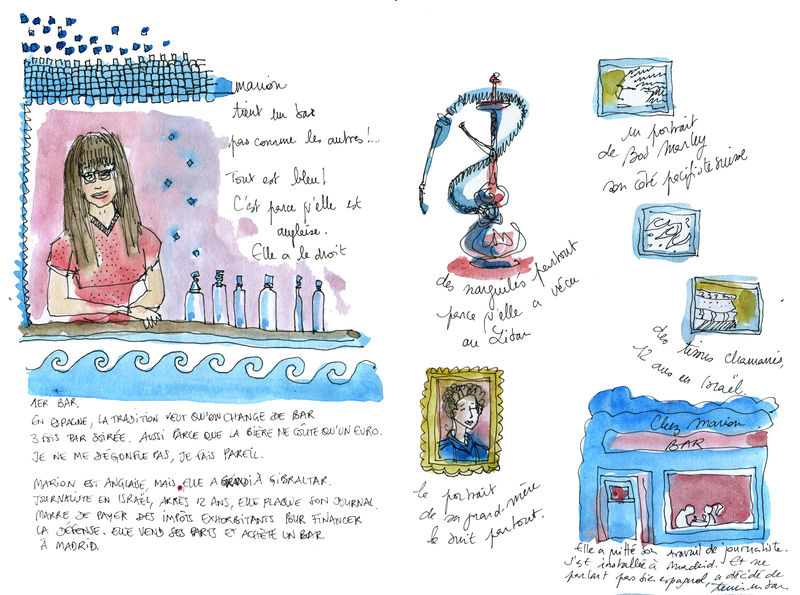 marion
tient un bar
pas comme les autres !...
Tout est bleu !
C'est parce qu'elle est
anglaise.
Elle a le droit
1ER BAR.
EN ESPAGNE, LA TRADITION VEUT QU'ON CHANGE DE BAR
3 FOIS PAR SOIRÉE. AUSSI PARCE QUE LA BIÈRE NE COÛTE QU'UN EURO.
JE NE ME DÉGONFLE PAS, JE FAIS PAREIL.
MARION EST ANGLAISE, MAIS ELLE A GRANDI À GIBRALTAR.
JOURNALISTE EN ISRAËL, APRÈS 12 ANS, ELLE PLAQUE SON JOURNAL.
MARRE DE PAYER DES IMPÔTS EXHORBITANTS POUR FINANCER
LA DÉFENSE. ELLE VEND SES PARTS ET ACHÈTE UN BAR
À MADRID.
des narguilés partout
parce qu'elle a vécu
au Liban
le portrait
de sa grand-mère
la suit partout.
un portrait
de Bob Marley
son côté pacifiste suisse
des tissus chamarrés,
12 ans en Israël
Chez Marion
BAR
Elle a quitté son travail de journaliste.
s'est installée à Madrid. Et ne
parlant pas bien espagnol, a décidé de
tenir un bar